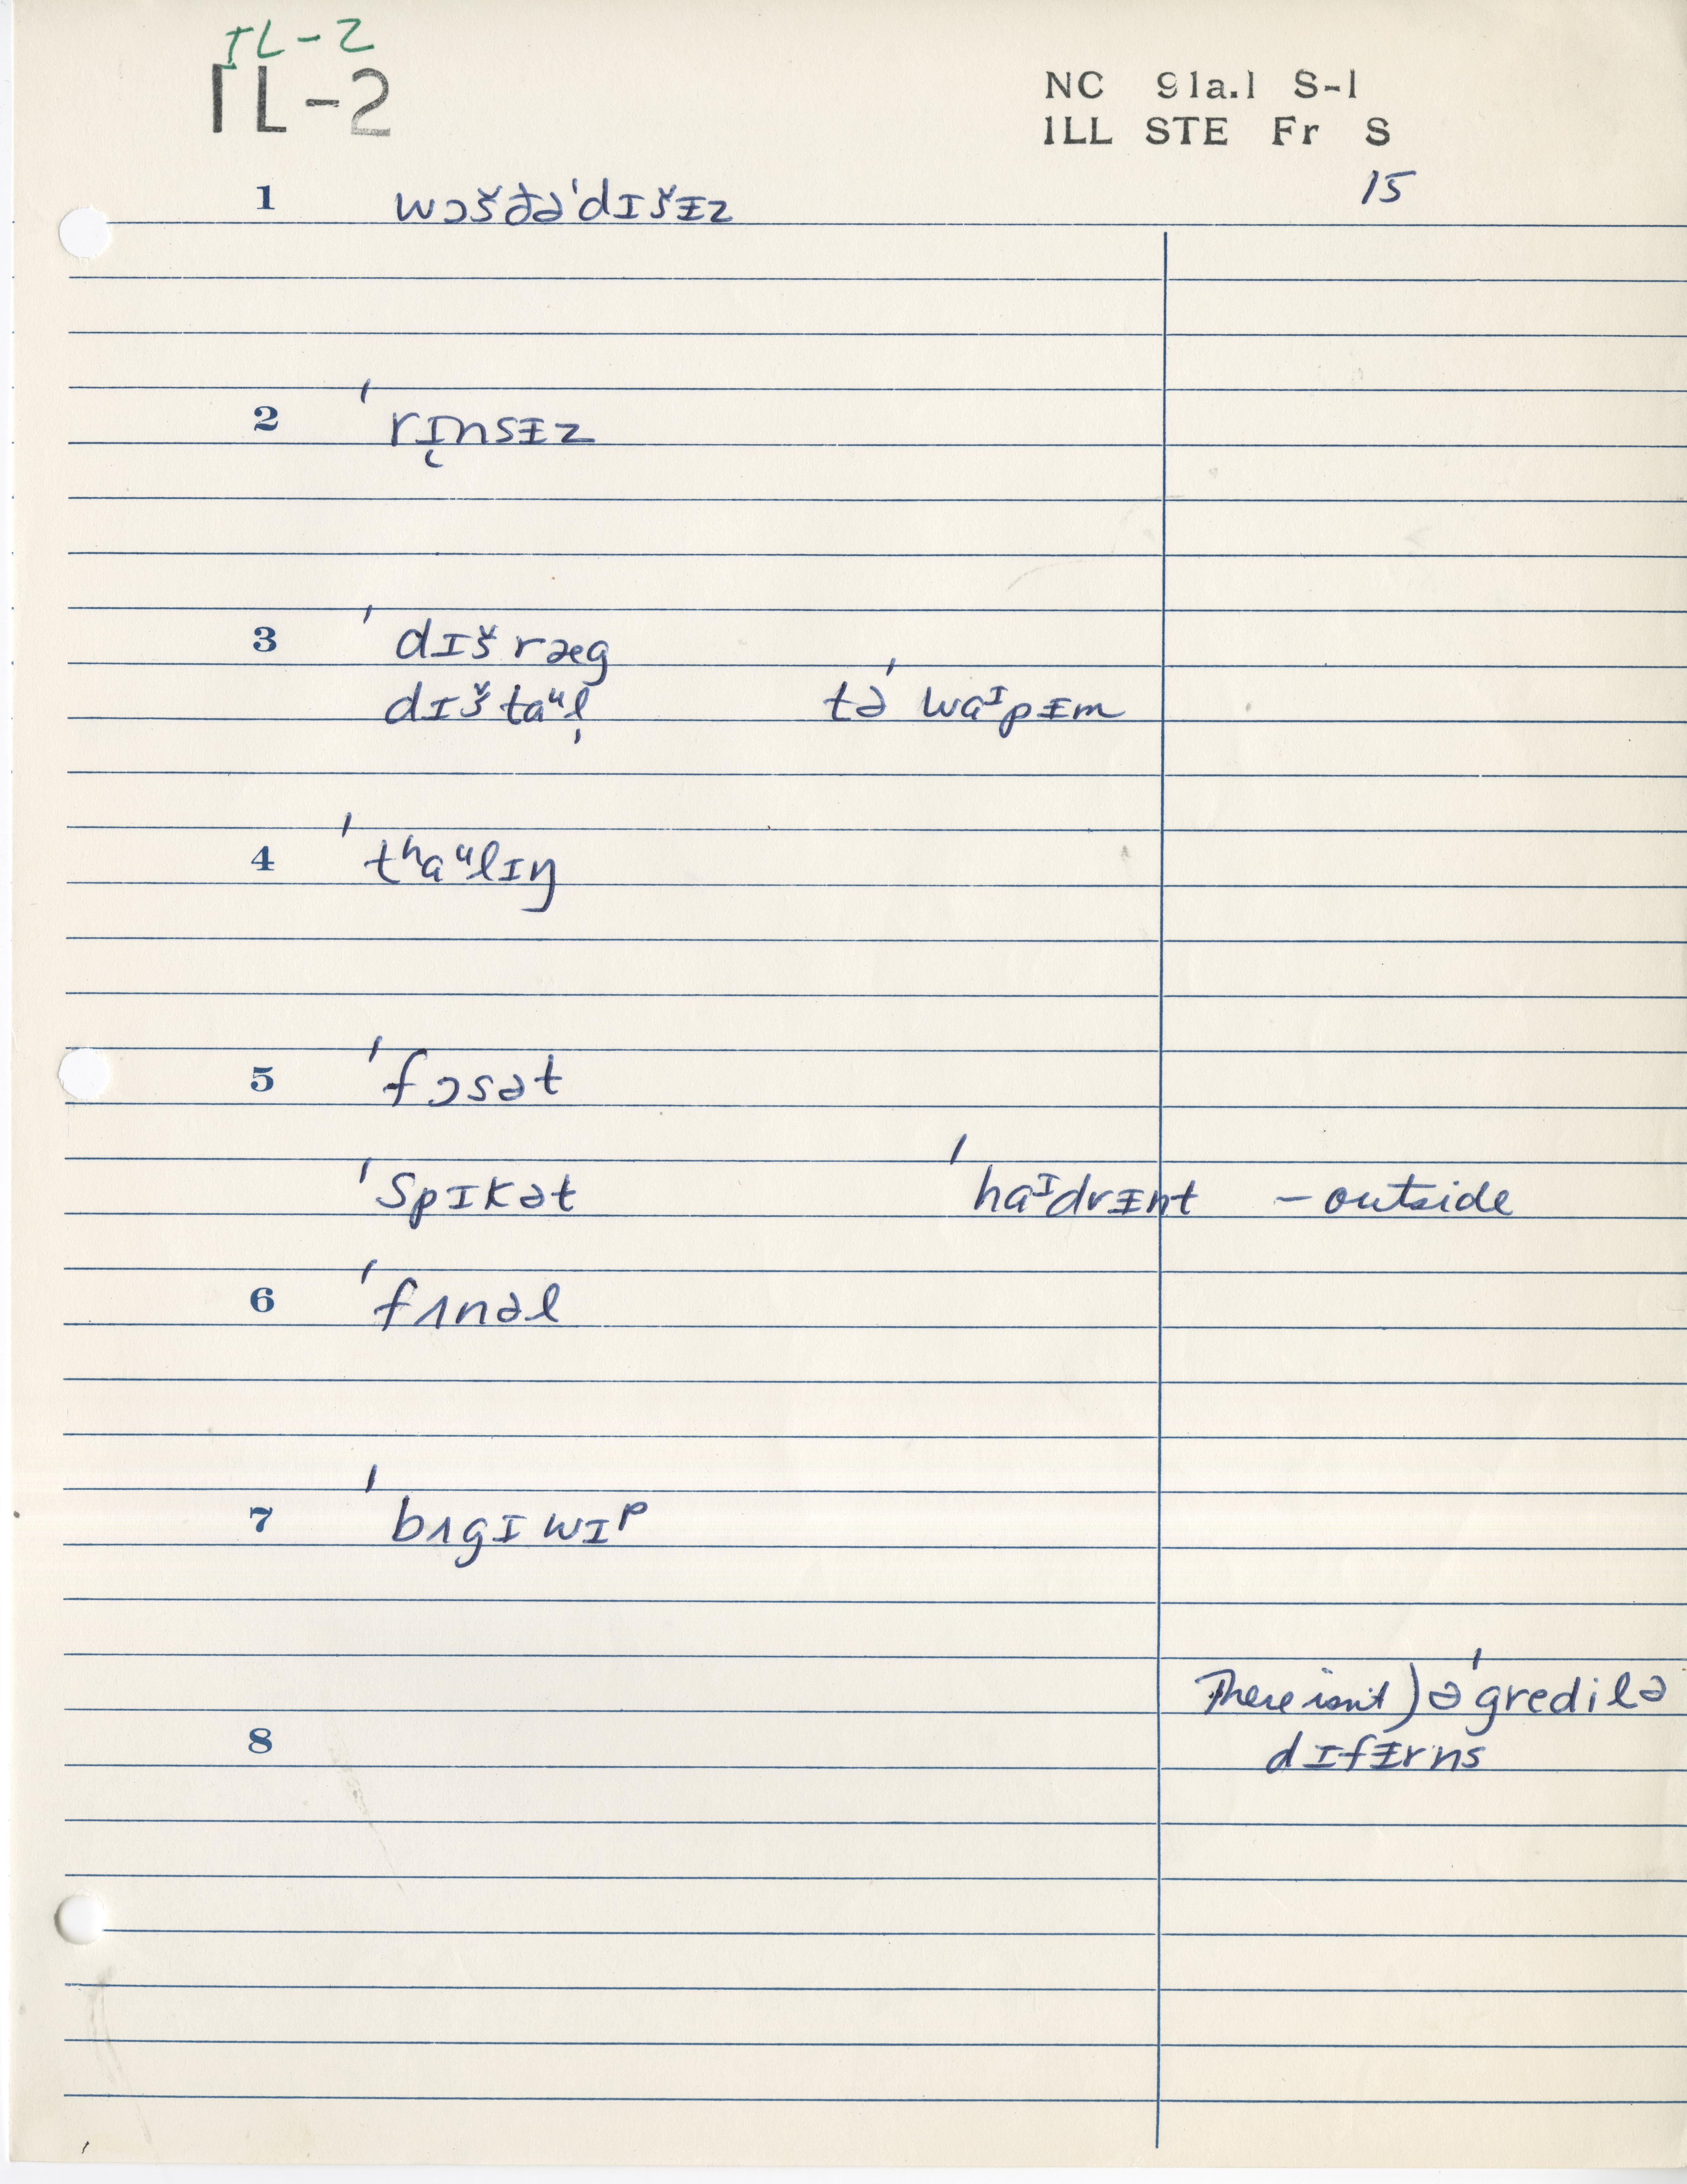 IL-2
IL-2
NC 91a.1 S-1
ILL STE Fr S
15
1 wɔšðə'dɪšɨz
2 'rɪ̨nsɨz
3 'dɪšræg
dɪštaᵘl̩ tə'waᶦpɨm
4 'tʰaᵘlɪŋ
5 'fɔsət
'spɪkət 'haᶦdrɨnt – outside
6 'fʌnəl
7 'bʌgɪwɪᵖ
There isn't) ə'gredilə
8 dɪfɨrns